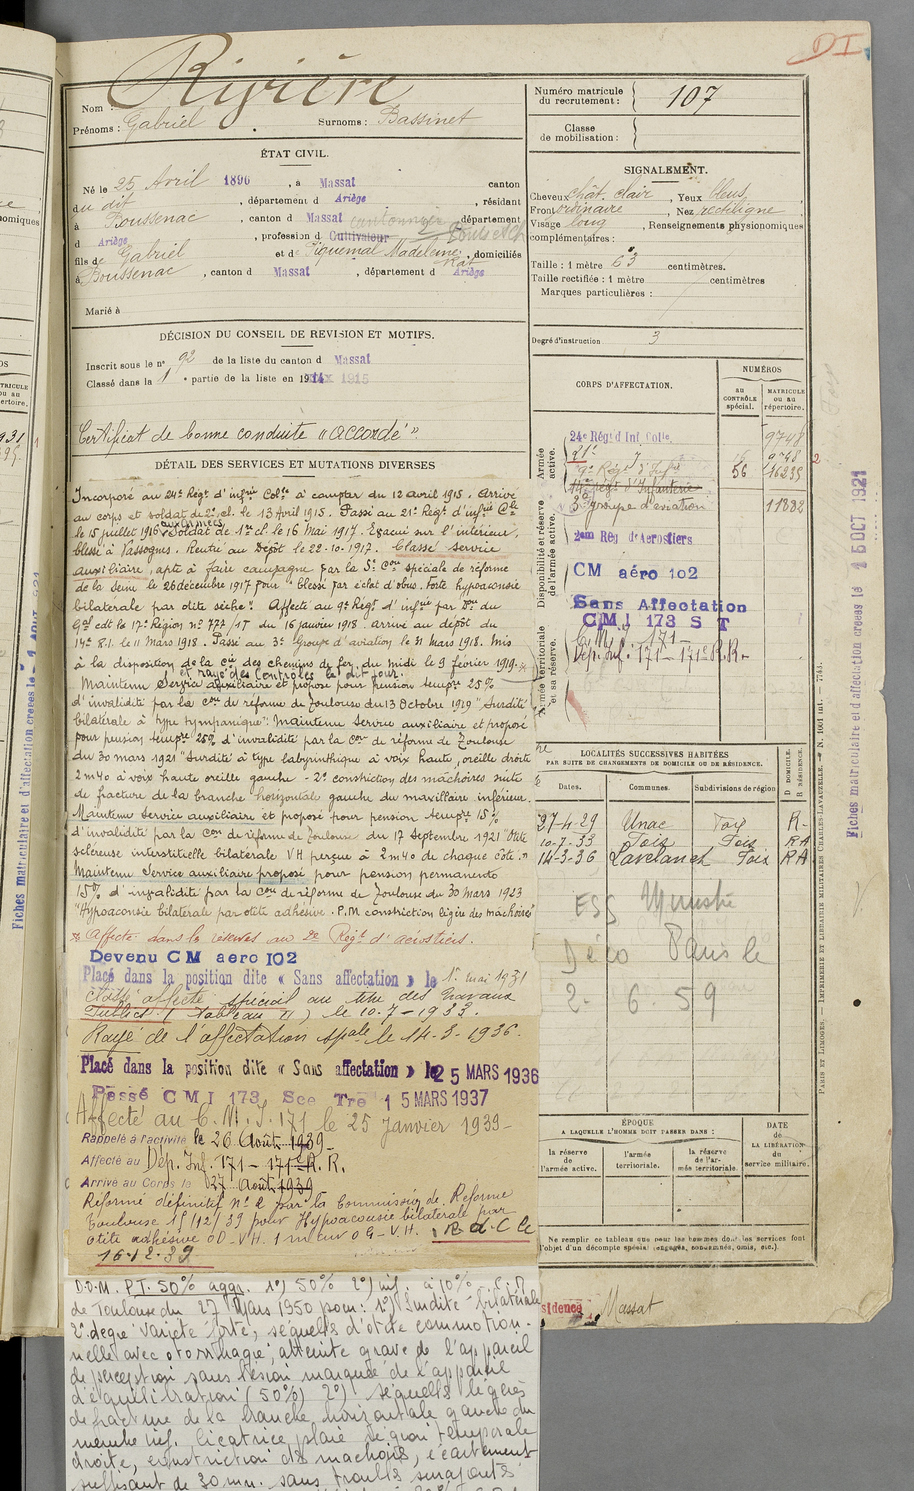 D I
Nom : Rivière
Prénoms : Gabriel Surnoms : Bassinet
Numéro matricule du recrutement : 107
Classe de mobilisation :
ÉTAT CIVIL.
Né le 25 Avril 1896, à Massat canton
du dit, département d Ariège, résidant
à Boussenac, canton d Massat cantonnier département
d Ariège, profession d Cultivateur
fils de Gabriel et de Piquemal Madeleine, domiciliés
à Boussenac, canton d Massat, département d Ariège
Marié à
SIGNALEMENT.
Cheveux chât. clair, Yeux bleus,
Front ordinaire, Nez rectiligne
Visage long, Renseignements physionomiques
complémentaires :
Taille : 1 mètre 63 centimètres.
Taille rectifiée : 1 mètre centimètres
Marques particulières :
Degré d'instruction 3
DÉCISION DU CONSEIL DE REVISION ET MOTIFS.
Inscrit sous le n° 92 de la liste du canton d Massat
Classé dans la 1 e partie de la liste en 1915
Certificat de bonne conduite "accordé".
DÉTAIL DES SERVICES ET MUTATIONS DIVERSES
Incorporé au 24e Régt d'infrie Colle à compter du 12 avril 1915. Arrivé
au corps et soldat de 2e cl. le 13 Avril 1915. Passé au 21e Régt d'infrie Cle
le 15 juillet 1916 aux armées Soldat de 1re cl. le 16 Mai 1917. Evacué sur l'intérieur,
blessé à Vassognes. Rentré au Dépôt le 22.10.1917. Classé service
auxiliaire, apte à faire campagne par la 5e Con spéciale de réforme
de la Seine le 26 décembre 1917 pour "blessé par éclat d'obus. Forte hypoacousie
bilatérale par otite sèche". Affecté au 9e Régt d'infie par Don du
Gal cdt le 17e Région n° 777/1T du 16 janvier 1918. arrivé au dépôt du
14e R.I. le 11 Mars 1918. Passé au 3e Groupe d'aviation le 31 Mars 1918. Mis
à la disposition de la Cie des chemins de fer du midi le 9 février 1919
et rayé des contrôles le dit jour.
Maintenu Service auxiliaire et proposé pour pension tempre 25%
d'invalidité par la Con de réforme de Toulouse du 13 Octobre 1919 "Surdité
bilatérale à type tympanique". Maintenu Service auxiliaire et proposé
pour pension tempre 25% d'invalidité par la Con de réforme de Toulouse
du 30 mars 1921 "Surdité à type labyrinthique à voix haute, oreille droite
2m40 à voix haute oreille gauche - 2° constriction des mâchoires suite
de fracture de la branche horizontale gauche du maxillaire inférieur.
Maintenu Service auxiliaire et proposé pour pension tempre 15%
d'invalidité par la Con de réforme de Toulouse du 17 Septembre 1921 "Otite
scléreuse interstitielle bilatérale VH perçue à 2m40 de chaque côté."
Maintenu Service auxiliaire proposé pour pension permanente
15% d'invalidité par la Con de réforme de Toulouse du 30 Mars 1923
"Hypoacousie bilatérale par otite adhésive. P.M constriction légère des mâchoires"
Affecté dans la réserve au 2e Régt d'aérostiers.
Devenu CM aéro 102
Placé dans la position dite « Sans affectation » le 1er mai 1931
Classé affecté spécial au titre des Travaux
Publics (Tableau II) le 10-7-1933.
Rayé de l'affectation spale le 14-3-1936.
Placé dans la position dite « Sans affectation » le 25 MARS 1936
Passé C M I 173 Sce Tre 15 MARS 1937
Affecté au C. M. I. 171 le 25 Janvier 1939-
Rappelé à l'activité le 26 Août 1939
Affecté au Dép. Inf. 171 - 171e R. R.
Arrivé au Corps le 27 Août 1939
Réformé définitif n° 2 par la Commission de Réforme
Toulouse 15/12/39 pour Hypoacousie bilatérale par
otite adhésive OD - V.H. 1 m eur OG - V.H. R d C le
16-12-39
D.O.M. P.T. 50% aggr. 1°) 50% 2°) inf. à 10% - C.R.
de Toulouse du 27 Mars 1950 pour : 1°) Surdité bilatérale
2e degré variété forte, séquelle d'otite commotion-
nelle avec otorrhagie ; atteinte grave de l'appareil
de perception sans lésion marquée de l'appareil
d'équilibration (50%) 2°) séquelle légères
de fracture de la branche horizontale gauche du
membre inf. cicatrice plaie région temporale
droite, constriction des machoires, écartement
suffisant de 30 mm. sans trouble surajouté
CORPS D'AFFECTATION.
NUMÉROS
AU CONTRÔLE spécial.
MATRICULE OU AU répertoire.
Armée active.
24e Régt d'Inf Colle 9748
21e 9748
9e Régt d'Infie 56 16235
14e Régt d'Infanterie
Disponibilité et réserve de l'armée active.
3e groupe d'aviation 11882
2eme Rég d'Aérostiers
CM aéro 102
Sans Affectation
CMI 173 S T
Armée territoriale et sa réserve.
C.M.I. 171-
Dép. Inf. 171 - 171e R.R.-
LOCALITÉS SUCCESSIVES HABITÉES
PAR SUITE DE CHANGEMENTS DE DOMICILE OU DE RÉSIDENCE.
Dates. Communes. Subdivisions de région D. DOMICILE. R. RÉSIDENCE.
27-4-29 Unac Foix R-
10-7-33 Foix Foix RA
14-3-36 Lavelanet Foix RA
2- 6. 59
ÉPOQUE
A LAQUELLE L'HOMME DOIT PASSER DANS :
la réserve de l'armée active.
l'armée territoriale.
la réserve de l'armée territoriale.
DATE de LA LIBÉRATION du service militaire.
Ne remplir ce tableau que pour les hommes dont les services font
l'objet d'un décompte spécial (engagés, condamnés, omis, etc.).
sidence Massat
PARIS ET LIMOGES. — IMPRIMERIE ET LIBRAIRIE MILITAIRES CHARLES-LAVAUZELLE.
Fiches matriculaire et d'affectation créées le 15 OCT 1921
Fiches matriculaire et d'affectation créées le